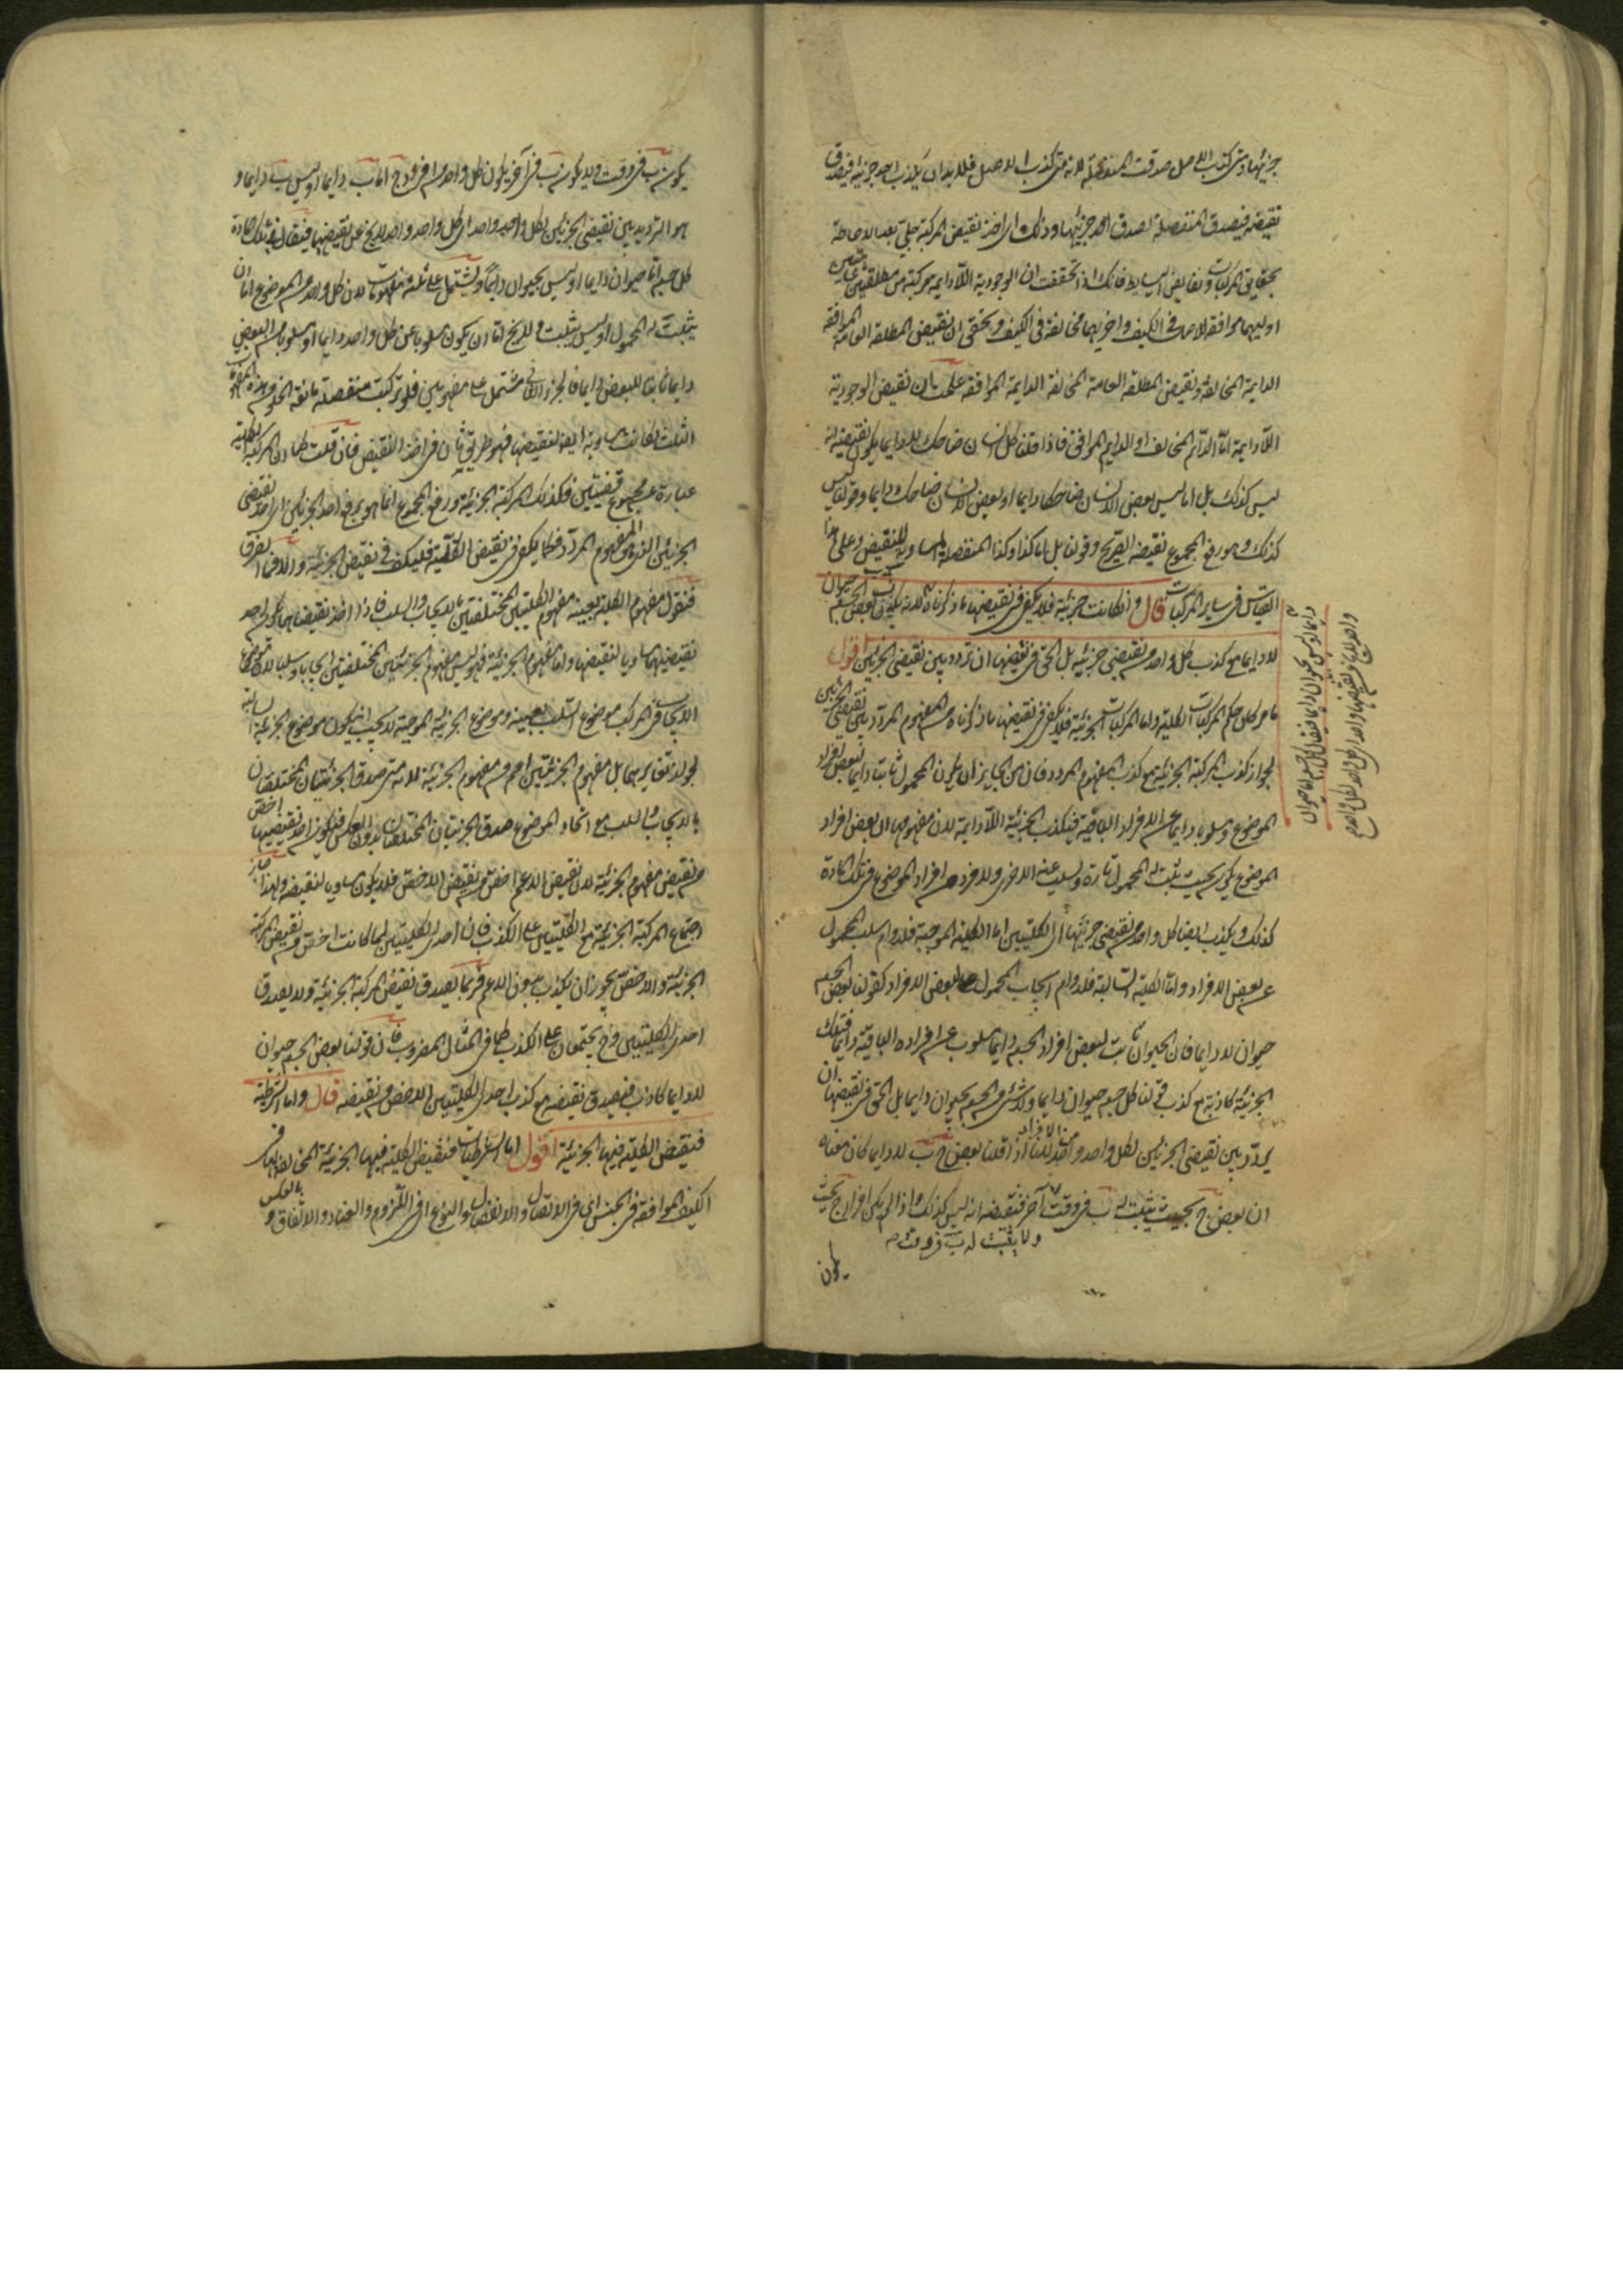 جزئيها ومتى كذب الاصل صدقت المنفصلة لانه متى كذب الاصل فلا بد ان يكذب احد جزئيه فيصدق
نقيضه فيصدق المنفصلة لصدق احد جزئيها وذلك اى اخذ نقيض المركبة جلي بعد الاحاطة
بحقايق المركبات ونقايض البسايط فانك اذا تحققت ان الوجودية اللادايمة مركبة من مطلقتين عامتين
اوليهما موافقة للاصل فى الكيف واخريهما مخالفة فى الكيف وتحقق ان نقيض المطلقة العامة الموافقة
الدايمة المخالفة ونقيض المطلقة العامة المخالفة الدايمة الموافقة علمت ان نقيض الوجودية
اللادايمة اما الدايم المخالف او الدايم الموافق فاذا قلنا كل انسان ضاحك لا دايما يكون نقيضه انه
ليس كذلك بل اما ليس بعض الانسان ضاحكا دايما او بعض الانسان ضاحك دايما وقولنا ليس
كذلك وهو رفع المجموع نقيضه الصريح وقولنا بل اما كذا وكذا المنفصلة المساوية للنقيض وعلى هذا
القياس فى ساير المركبات قال وان كانت جزئية فلا يكفى فى نقيضها ما ذكرناه لانه يكذب بعض الجسم حيوان
لا دايما مع كذب كل واحد من نقيضى جزئيه بل الحق فى نقيضها ان تردد بين نقيضى الجزئين اقول
ما مر كان حكم المركبات الكلية واما المركبات الجزئية فلا يكفى فى نقيضها ما ذكرناه من المفهوم المردد بين نقيضى الجزئين
لجواز كذب المركبة الجزئية مع كذب المفهوم المردد فان من الجايز ان يكون المحمول ثابتا دايما لبعض افراد
الموضوع ومسلوبا دايما عن الافراد الباقية فيكذب الجزئية اللادايمة لان مفهومها ان بعض افراد
الموضوع يكون بحيث يثبت له المحمول تارة ويسلب عنه اخرى ولا فرد من افراد الموضوع فى تلك المادة
كذلك ويكذب ايضا كل واحد من نقيضى جزئيها اى الكليتين اما الكلية الموجبة فلدوام سلب المحمول
عن بعض الافراد واما الكلية السالبة فلدوام ايجاب المحمول لبعض الافراد كقولنا بعض الجسم
حيوان لا دايما فان الحيوان ثابت لبعض افراد الجسم دايما ومسلوب عن افراده الباقية دايما فتلك
الجزئية كاذبة مع كذب قولنا كل جسم حيوان دايما ولا شئ من الجسم بحيوان دايما بل الحق فى نقيضها ان
يردد بين نقيضى الجزئين لكل واحد واحد من الافراد لانا اذا قلنا بعض ج ب لا دايما كان معناه
ان بعض ج بحيث يثبت له ب فى وقت ولا يثبت له ب فى وقت آخر فنقيضه انه ليس كذلك واذا لم يكن افراد ج بحيث
يكون
واحد لا يخ عن نقيضهما واحد اى كل واحد
دايما او ليس بحيوان دايما فيقال كل جسم اما حيوان
يكون ب فى وقت ولا يكون ب فى آخر يكون كل واحد من افراد ج اما ب دايما او ليس ب دايما و
هو الترديد بين نقيضى الجزئين لكل واحد واحد اى كل واحد واحد لا يخ عن نقيضهما فيقال فى تلك المادة
كل جسم اما حيوان دايما او ليس بحيوان دايما ويشتمل على ثلثة مفهومات لان كل واحد من الموضوع اما ان
يثبت له المحمول او ليس يثبت ولا يخ اما ان يكون مسلوبا عن كل واحد دايما او مسلوبا عن البعض
دايما ثابتا للبعض دايما فالجزء الثانى مشتمل على مفهومين فلو ركبت منفصلة مانعة الخلو من هذه المفهومات
الثلث لكانت مساوية ايضا لنقيضها فهو طريق ثان فى اخذ النقيض فان قلت كما ان المركبة الكلية
عبارة عن مجموع قضيتين فكذلك المركبة الجزئية ورفع المجموع انما هو برفع احد الجزئين اى احد نقيضى
الجزئين الذى هو المفهوم المردد فكما يكفى فى نقيض الكلية فليكف فى نقيض الجزئية والا فما الفرق
فنقول مفهوم الكلية بعينه مفهوم الكليتين المختلفتين بالايجاب والسلب فاذا اخذ نقيضاهما يكون احد
نقيضيهما مساويا لنقيضها واما مفهوم الجزئية فهو ليس مفهوم الجزئيتين المختلفتين ايجابا وسلبا لان موضوع
الايجاب فى المركب موضوع السلب بعينه وموضوع الجزئية الموجبة لا يجب ان يكون موضوع الجزئية السالبة
لجواز تغايرهما بل مفهوم الجزئيتين اعم من مفهوم الجزئية لانه متى صدق الجزئيتان المختلفتان
بالايجاب والسلب مع اتحاد الموضوع صدق الجزئيتان المختلفتان بدون العكس فيكون احد نقيضيهما اخص
من نقيض مفهوم الجزئية لان نقيض الاعم اخص من نقيض الاخص فلا يكون مساويا لنقيضه ولهذا جاز
اجتماع المركبة الجزئية مع الكليتين على الكذب فان احدى الكليتين لما كانت اخص من نقيض المركبة
الجزئية والاخص يجوز ان يكذب بدون الاعم فربما يصدق نقيض المركبة الجزئية ولا يصدق
احدى الكليتين وح يجتمعان على الكذب كما فى المثال المضروب فان قولنا بعض الجسم حيوان
لا دايما كاذب فيصدق نقيضه مع كذب احدى الكليتين الاخص من نقيضه قال واما الشرطية
فنقيض الكلية فيها الجزئية اقول اما الشرطيات فنقيض الكلية فيها الجزئية المخالفة لها فى
الكيف الموافقة فى الجنس اى فى الاتصال والانفصال والنوع اى فى اللزوم والعناد والاتفاق وبالعكس